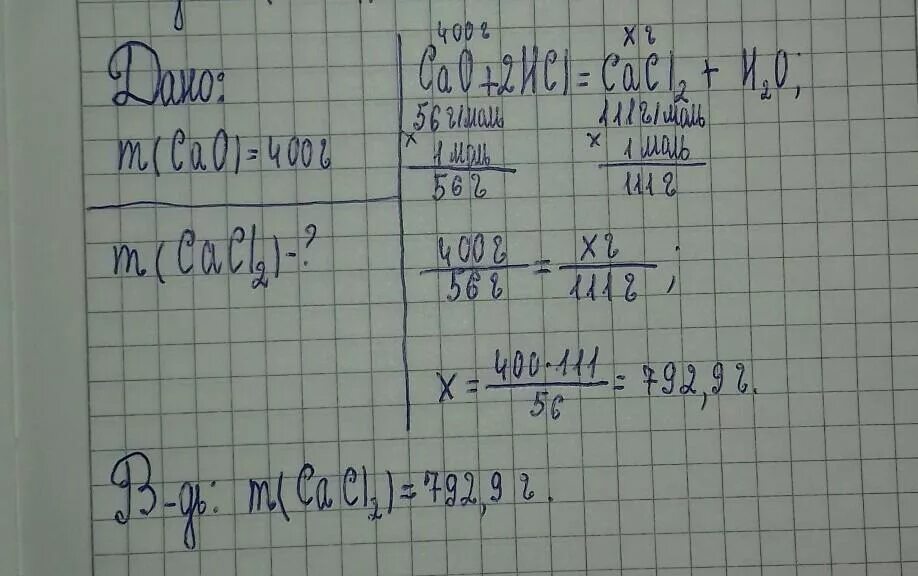 Дано:
m(CaO)=400г
m(CaCl₂)-?
400г xг
CaO+2HCl=CaCl₂ + H₂O;
56г/моль 111г/моль
x 1моль x 1моль
56г 111г
400г/56г = xг/111г ;
x = 400·111/56 = 792,9г.
В-дь: m(CaCl₂)=792,9г.